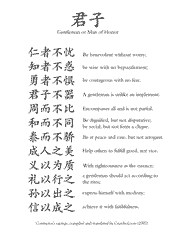 君子
Gentleman or Man of Honor
仁者不忧 Be benevolent without worry,
知者不惑 be wise with no bepuzzlement;
勇者不惧 be courageous with no fear.
君子不器 A gentleman is unlike an implement.
周而不比 Encompasses all and is not partial.
和而不同 Be dignified, but not disputative;
be social, but not form a clique.
泰而不骄 Be at peace and ease, but not arrogant.
成人之美 Help others to fulfill good, not vice.
义以为质 With righteousness as the essence;
礼以行之 a gentleman should act according to
the rites;
孙以出之 express himself with modesty;
信以成之 achieve it with faithfulness.